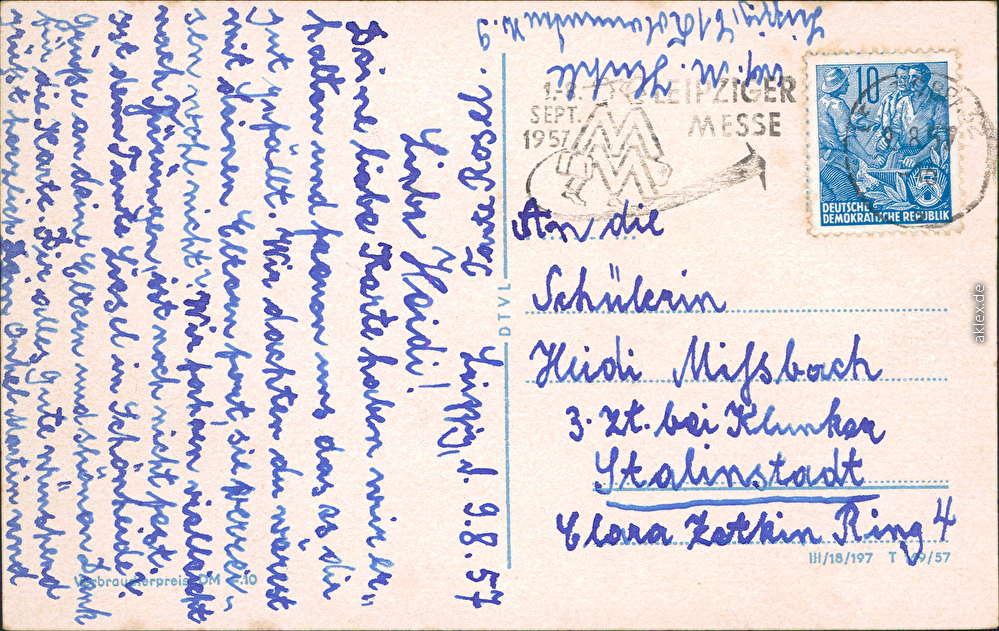 Leipzig, d. 9.8.57
Liebe Haidi!
Deine liebe Karte haben wir er-
halten und freuen uns das es dir
gut gefällt. Wir dachten du wärest
mit deinen Eltern fort, sie verrei-
sen wohl nicht? Wir fahren vielleicht
nach Thüringen, ist noch nicht fest.
Ist denn Tante Lissel in Schönheide?
Grüße an deine Eltern und schönen Dank
für die Karte. Dir alles gute wünschend
grüßt herzlich dein Onkel Martin und
Tante Rosel.
Leipzig,
DTVL
Verbraucherpreis DM 0.10
1.-8.
SEPT.
1957
LEIPZIGER
MESSE
MM
10
DEUTSCHE
DEMOKRATISCHE REPUBLIK
An die
Schülerin
Heidi Mißbach
z. Zt. bei Klunker
Stalinstadt
Clara Zetkin Ring 4
III/18/197 T 149/57
aklex.de